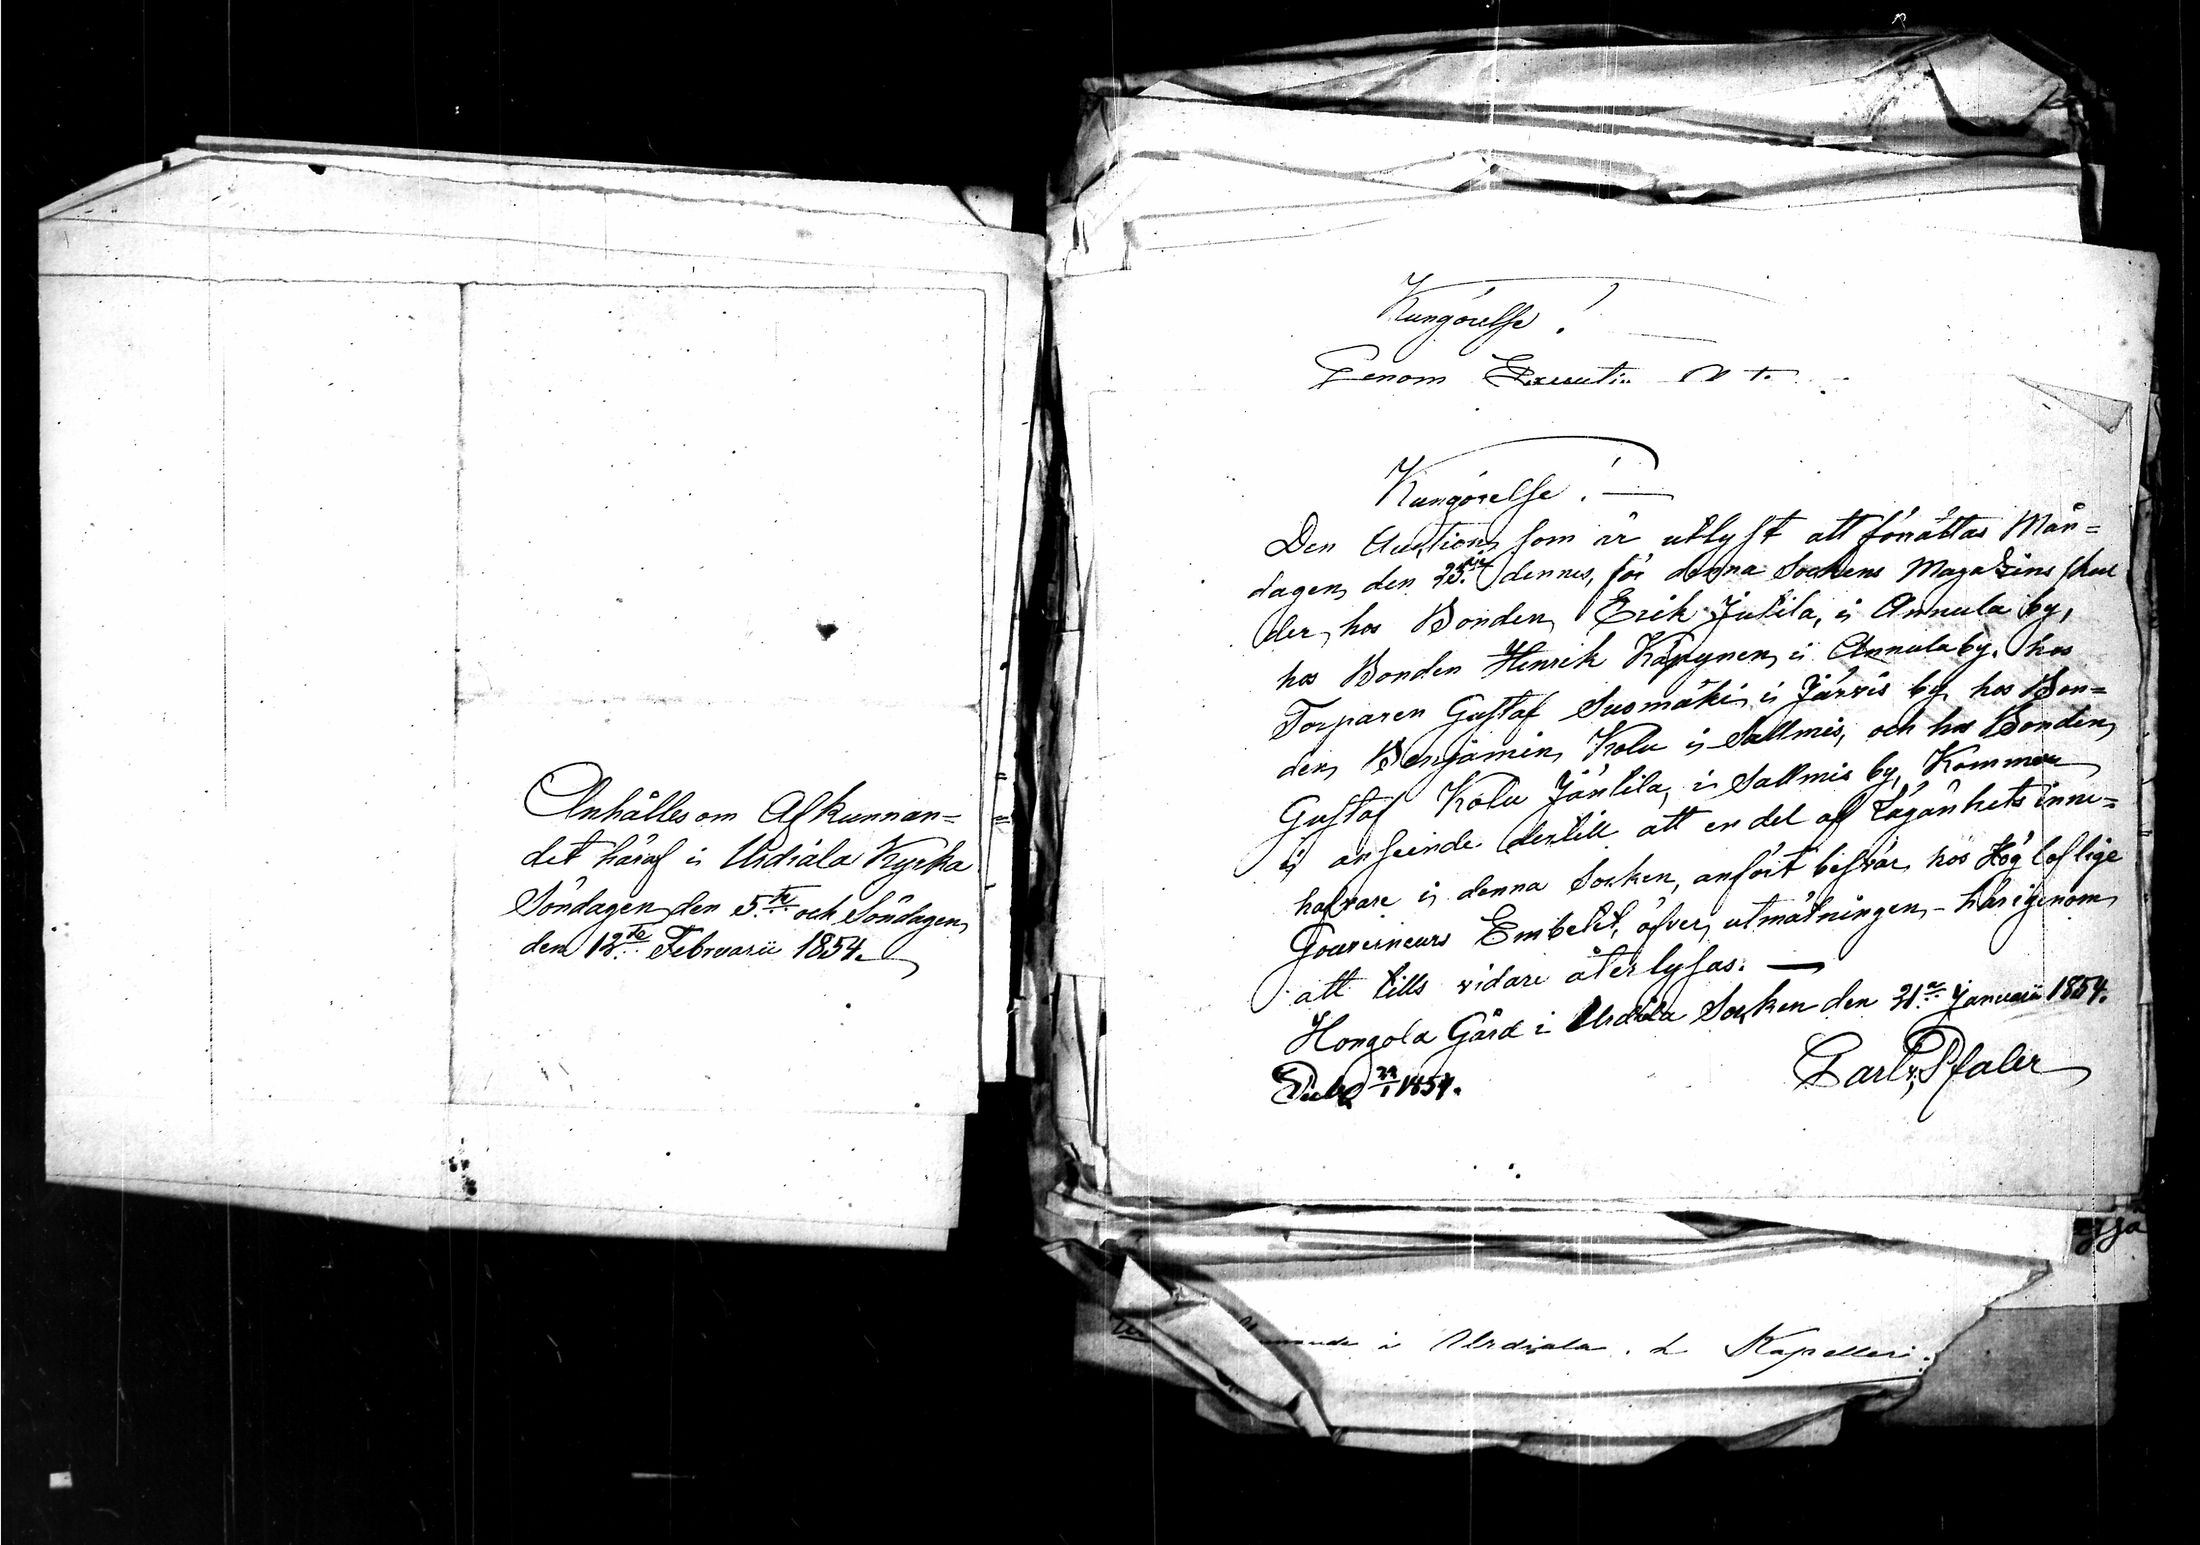 Anhålles om Afkunnan=
det häraf i Urdiala Kyrka
Söndagen den 5.te och Söndagen
den 12.te Februarii 1854.
Kungörelse!
Genom Executiv
Kungörelse!
Den Auction som är utlyst att förrättas Mån=
dagen den 23. dennes, för denna Sockens Magazins skul
der, hos Bonden Erik Jutila, i Annula by,
hos Bonden Henrik Käpynen i Annula by, hos
Torparen Gustaf Suomäki i Järvis by, hos Bon=
den Benjamin Kolu i Sallmis, och hos Bonden
Gustaf Kolu Jäntila, i Sallmis by, Kommer
i anseende dertill att en del af Lägenhets inne=
hafvare i denna Socken, anfört besvär hos Högloflige
Gouverneurs Embetet, öfver utmätningen - härigenom
att tills vidare återlysas. —
Hongola Gård i Urdiala Socken den 21. Januarii 1854.
Carl v. Pfaler
Publ. 22/1 1854.
i Urdiala. Kapelleri